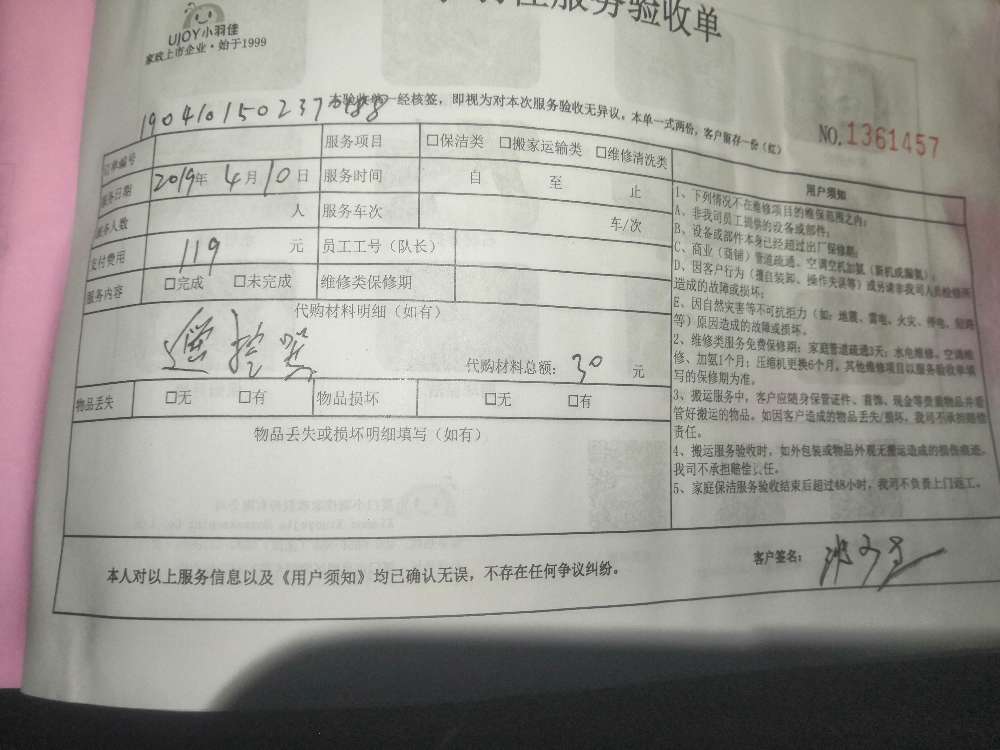 UJOY小羽佳
家政上市企业·始于1999
服务验收单
一经核签，即视为对本次服务验收无异议。本单一式两份，客户留存一份（红）
NO.1361457
订单编号
服务项目 □保洁类 □搬家运输类 □维修清洗类
服务日期 2019年 4月10日 服务时间 自 至 止
服务人数 人 服务车次 车/次
支付费用 119 元 员工工号（队长）
服务内容 □完成 □未完成 维修类保修期
代购材料明细（如有）
代购材料总额： 30 元
物品丢失 □无 □有 物品损坏 □无 □有
物品丢失或损坏明细填写（如有）
用户须知
1、下列情况不在维修项目的维保范围之内：
A、非我司员工提供的设备或部件；
B、设备或部件本身已经超过出厂保修期；
C、商业（商铺）管道疏通、空调空机加氨（新机或漏氨）；
D、因客户行为（擅自装卸、操作失误等）或另请非我司人员检修所
造成的故障或损坏；
E、因自然灾害等不可抗拒力（如：地震、雷电、火灾、停电、短路
等）原因造成的故障或损坏。
2、维修类服务免费保修期：家庭管道疏通3天；水电维修、空调维
修、加氨1个月；压缩机更换6个月。其他维修项目以服务验收单填
写的保修期为准。
3、搬运服务中，客户应随身保管证件、首饰、现金等贵重物品并看
管好搬运的物品。如因客户造成的物品丢失/损坏，我司不承担赔偿
责任。
4、搬运服务验收时，如外包装或物品外观无搬运造成的损伤痕迹，
我司不承担赔偿责任。
5、家庭保洁服务验收结束后超过48小时，我司不负责上门返工。
本人对以上服务信息以及《用户须知》均已确认无误，不存在任何争议纠纷。
客户签名：